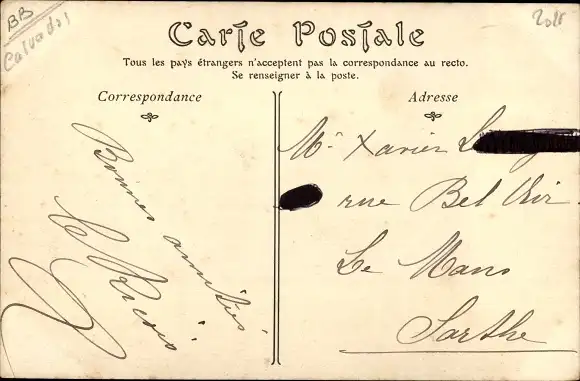 BB
Calvados
Carte Postale
Tous les pays étrangers n'acceptent pas la correspondance au recto.
Se renseigner à la poste.
Correspondance
Bonnes amitiés
Adresse
Mr Xavier
rue Bel Air
Le Mans
Sarthe